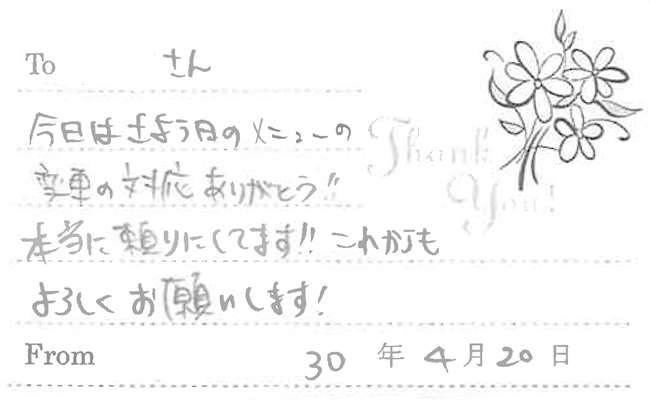 To さん
今日はきよう日のメニューの
変更の対応ありがとう!!
本当に頼りにしてます!! これからも
よろしくお願いします!
Thank You!
From 30 年 4 月 20 日